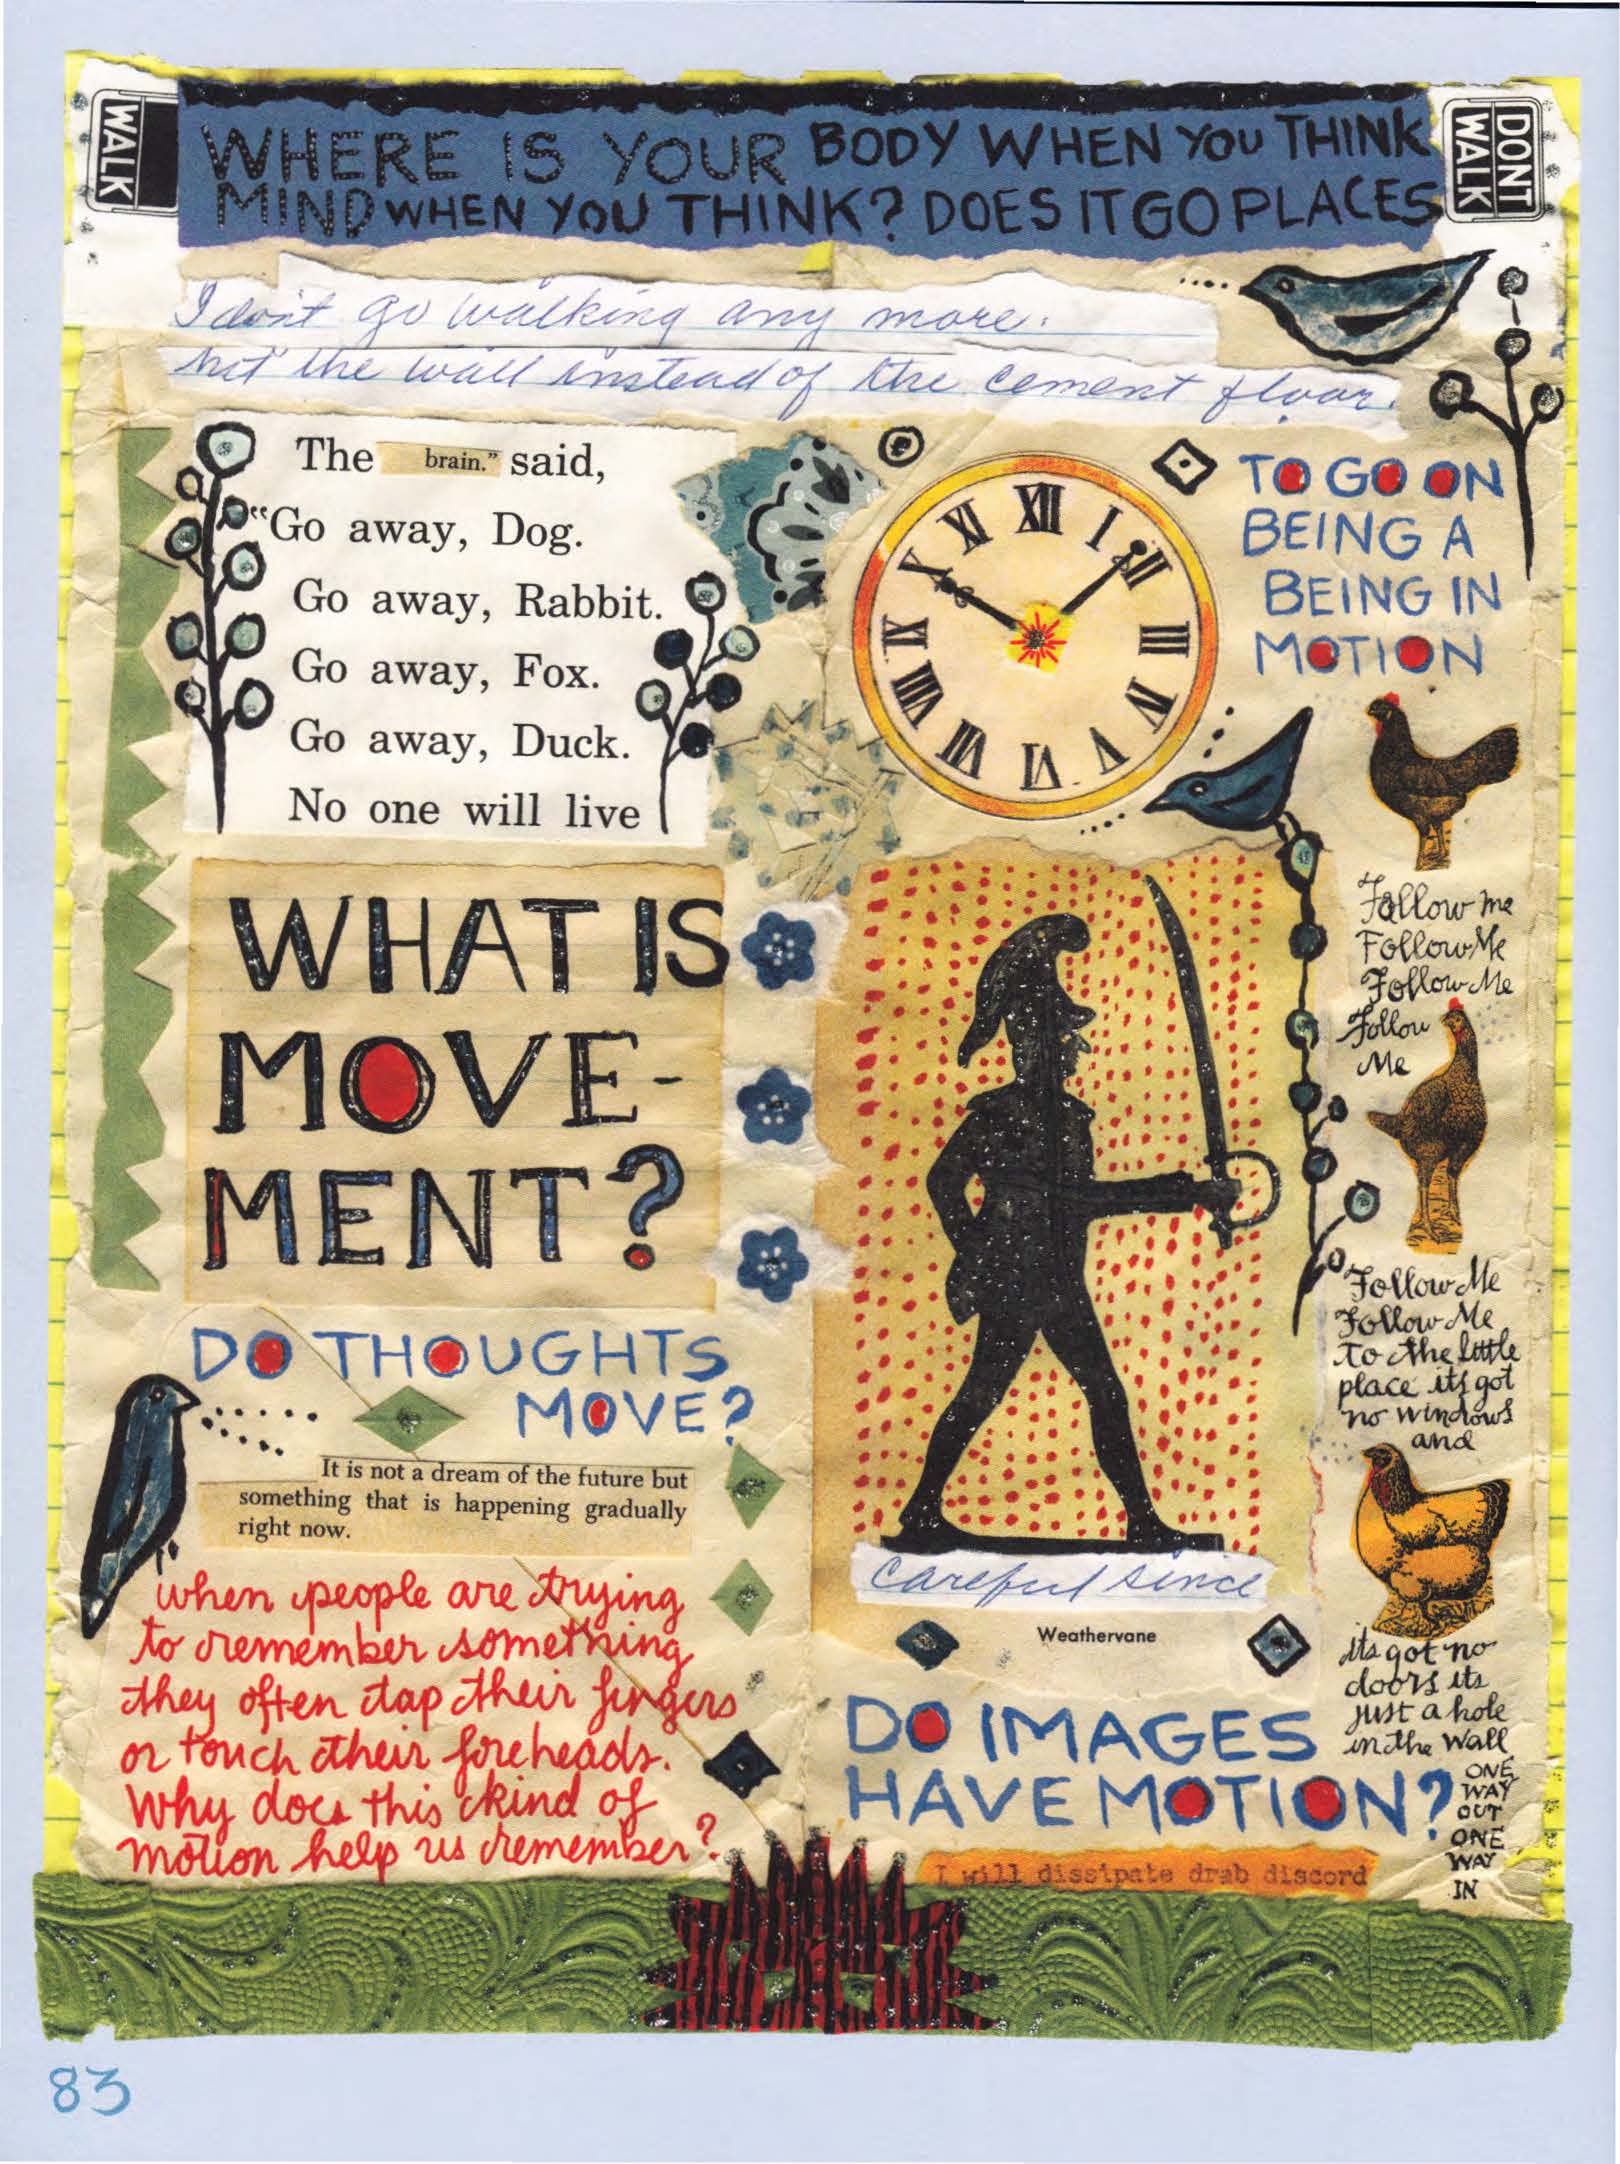 WALK
WHERE IS YOUR BODY WHEN YOU THINK
MIND WHEN YOU THINK? DOES IT GO PLACES
DONT
WALK
I don't go walking any more.
hit the wall instead of the cement floor.
The brain." said,
"Go away, Dog.
Go away, Rabbit.
Go away, Fox.
Go away, Duck.
No one will live
XII
I
II
III
IV
V
VI
VII
VIII
IX
X
XI
TO GO ON
BEING A
BEING IN
MOTION
WHAT IS
MOVE-
MENT?
Follow me
Follow Me
Follow Me
Follow
Me
Follow Me
Follow Me
to the little
place its got
no windows
and
its got no
doors its
just a hole
in the wall
ONE
WAY
OUT
ONE
WAY
IN
DO THOUGHTS
MOVE?
It is not a dream of the future but
something that is happening gradually
right now.
when people are trying
to remember something
they often tap their fingers
or touch their foreheads.
Why does this kind of
motion help us remember?
careful since
Weathervane
DO IMAGES
HAVE MOTION?
I will dissipate drab discord
83